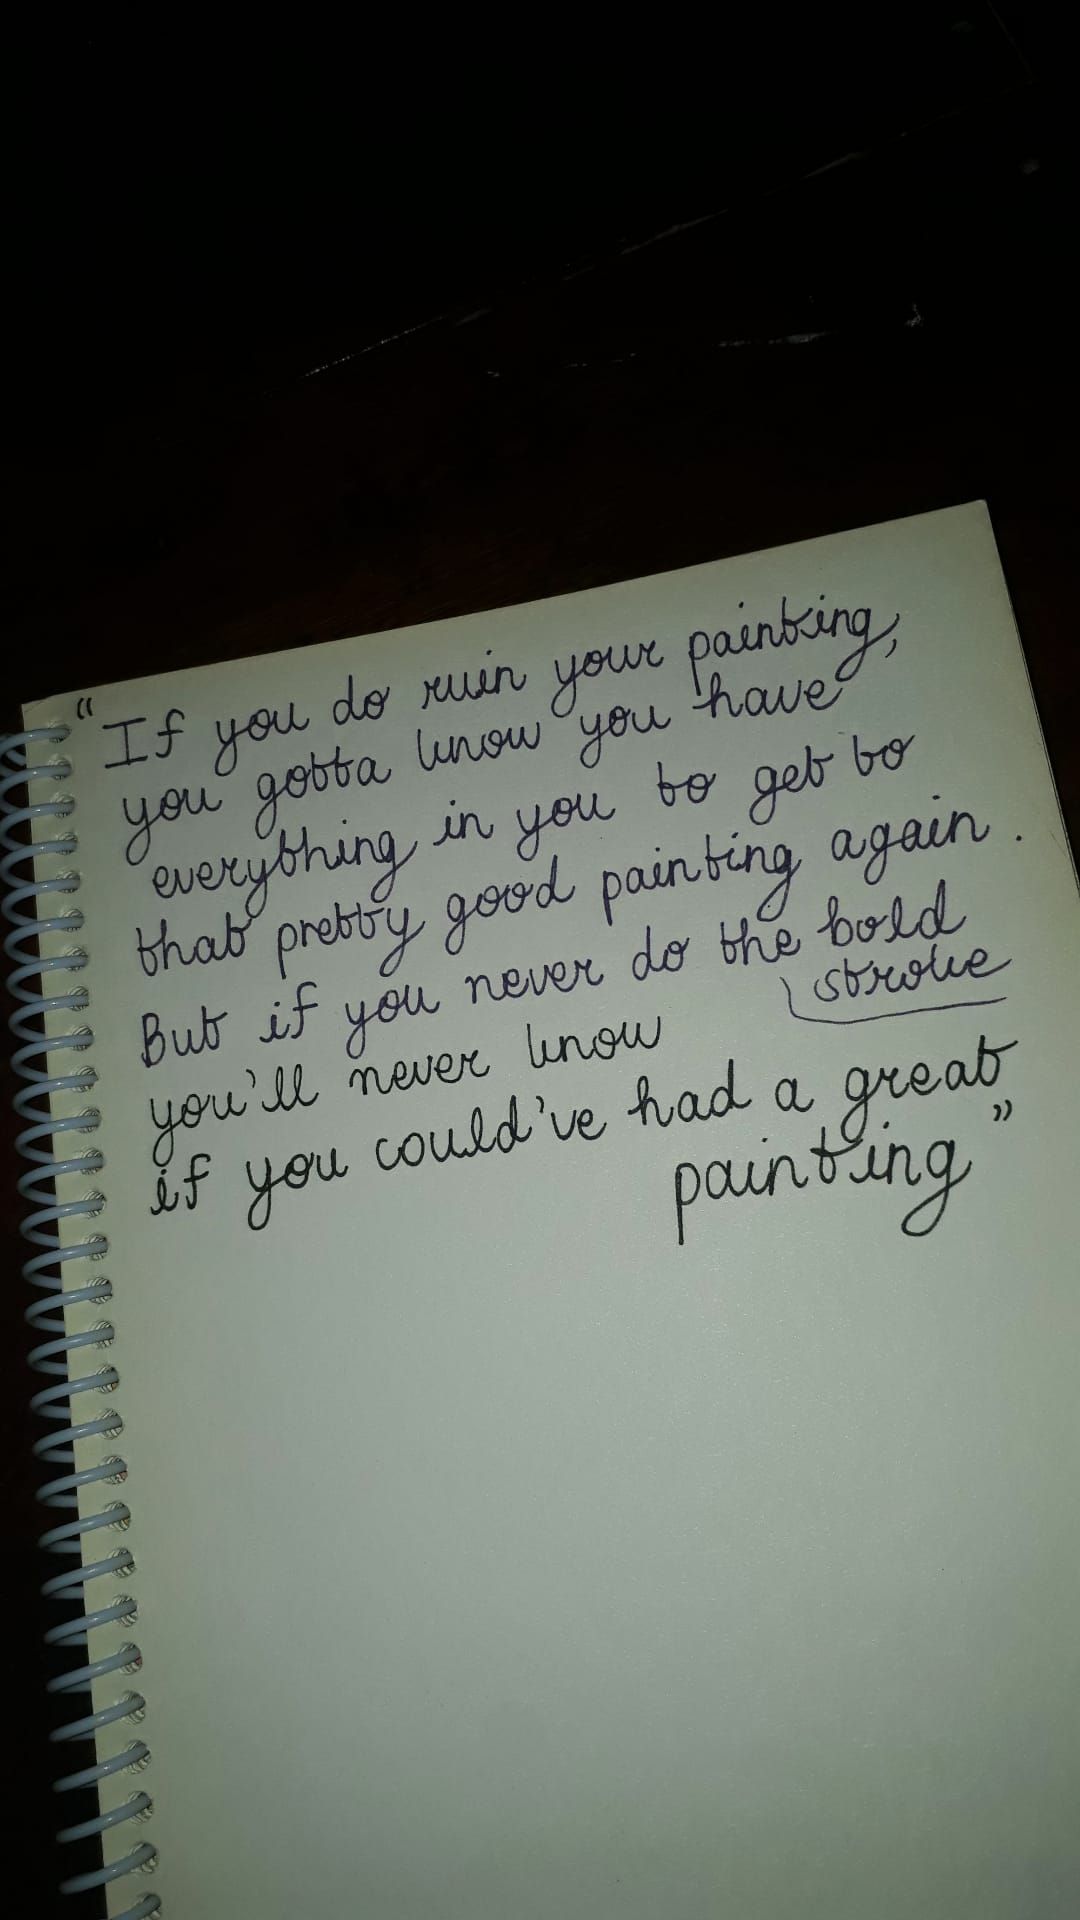 "If you do ruin your painting,
you gotta know you have
everything in you to get to
that pretty good painting again.
But if you never do the bold
stroke
you'll never know
if you could've had a great
painting"